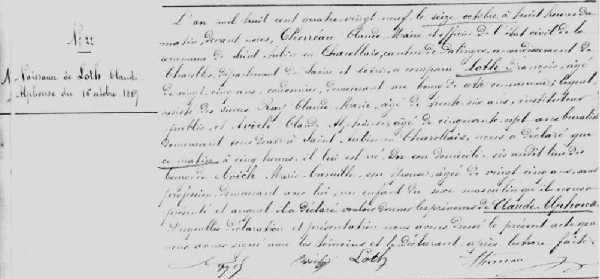 N° 21
Naissance de Loth Claude
Alphonse du 16 octobre 1889
L'an mil huit cent quatre vingt neuf le seize octobre à huit heures du
matin, devant nous, Claude Marie officier de l'état civil de la
commune de Saint Aubin en Charollais, canton de Palinges, arrondissement de
Charolles, département de Saône et Loire, a comparu Loth François, âgé
de vingt cinq ans, cordonnier, demeurant au bourg de cette commune; lequel,
assisté des sieurs Claude Marie, âgé de trente six ans, instituteur
public, et Claude Alphonse âgé de cinquante sept ans
demeurant tous deux à Saint Aubin en Charollais, nous a déclaré que
ce matin à cinq heures, il lui est né en son domicile sis audit lieu du
bourg de Marie Camille, son épouse, âgée de vingt cinq ans, sans
profession, demeurant avec lui, un enfant du sexe masculin qu'il nous a
présenté et auquel il a déclaré vouloir donner les prénoms de Claude Alphonse
Lesquelles déclaration et présentation nous avons dressé le présent acte que
nous avons signé avec les témoins et le déclarant, après lecture faite.
Loth